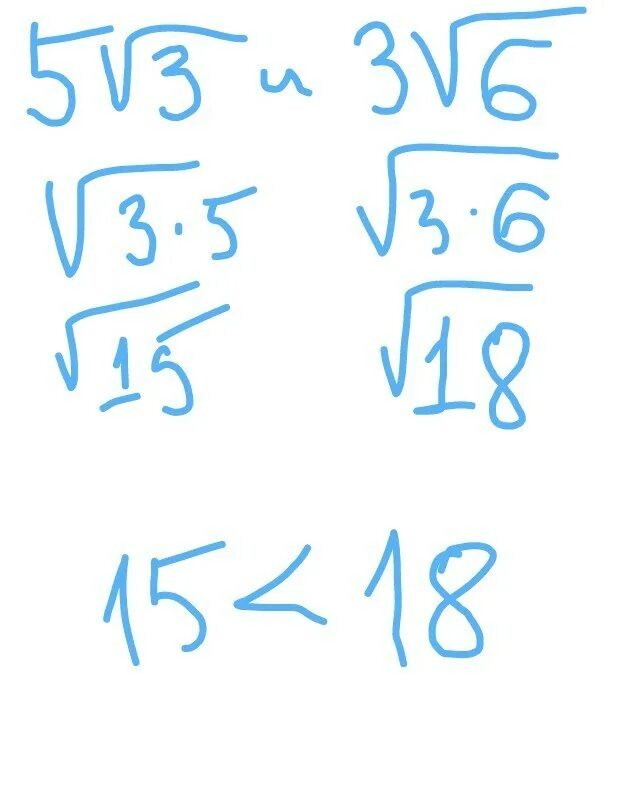 5√3 и 3√6
√3·5 √3·6
√15 √18
15 < 18